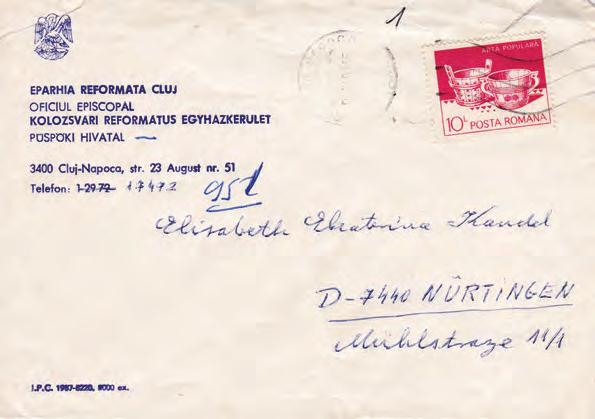 1
ARTA POPULARĂ
10L POSTA ROMANA
EPARHIA REFORMATA CLUJ
OFICIUL EPISCOPAL
KOLOZSVARI REFORMATUS EGYHAZKERULET
PÜSPÖKI HIVATAL
3400 Cluj-Napoca, str. 23 August nr. 51
Telefon: 1-29-72 17472
951
Elisabeth Ekaterina Kandel
D-7440 NÜRTINGEN
Mühlstraze 11/1
I.P.C. 1987-8220, 9000 ex.